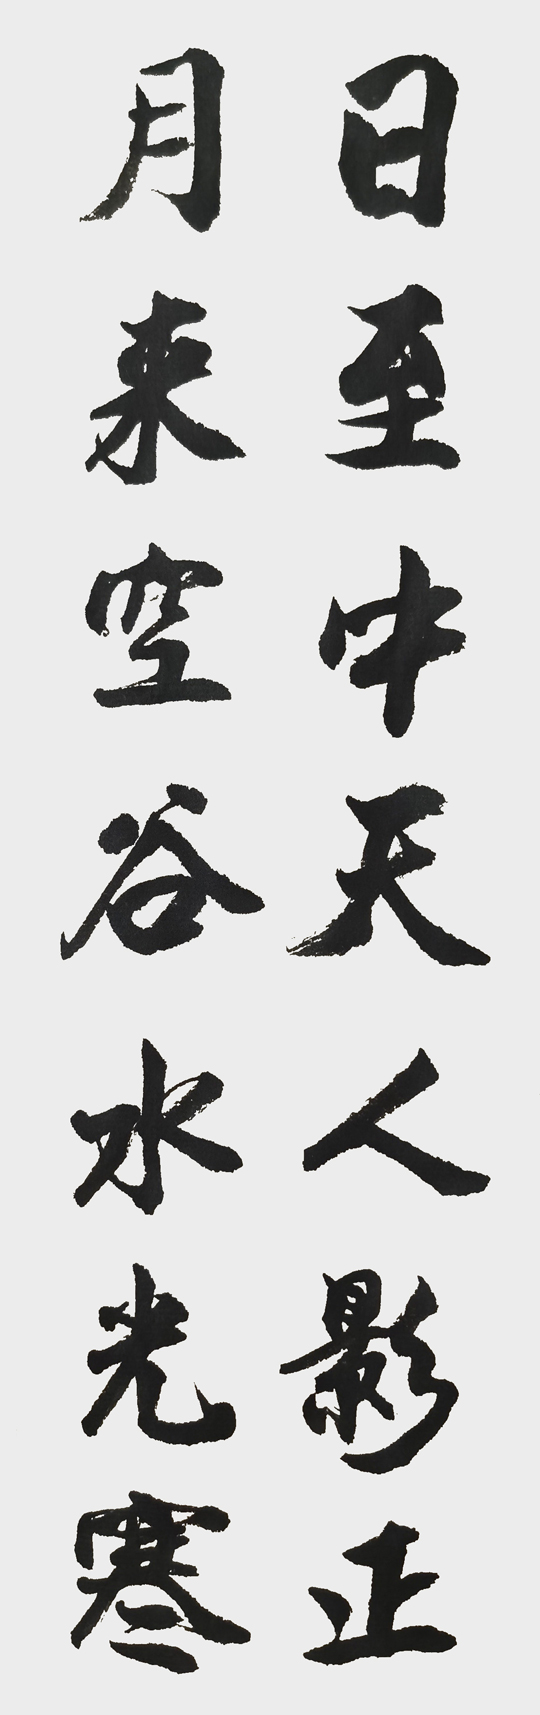 日至中天人影正
月来空谷水光寒